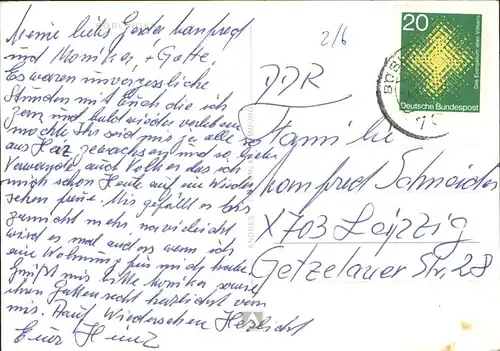 Meine liebs Gerda Manfred
und Monika, + Gatte.
Es waren unvergessliche
Stunden mit Euch die ich
gern und bald wieder verleben
möchte Ihr seid mir ja alle so
aus Herz gewachsen und so liebe
Verwandte auch Volker das ich
mich schon Heute auf ein Wieder
sehen freue. Mir gefällt es hir
garnicht mehr, na vileicht
wird es mal anders wenn ich
eine Wohnung für mich habe
Grüsst mir bitte Monika sowie
ihren Gatten recht herzlichst von
mir. Auf Wiedersehen Herzlichst
Euer Heinz
2/6
DDR
Familie
Manfred Schneider
X703 Leipzig
Getzelauer Str. 28
20
Das Europäische
Deutsche Bundespost